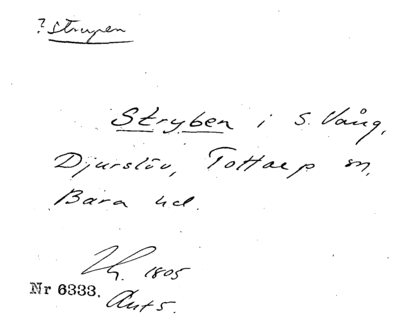 ? strupen
Stryben i S. Vång,
Djurslöv, Tottarp sn,
Bara hd.
1805
Nr 6333. Akt 5.